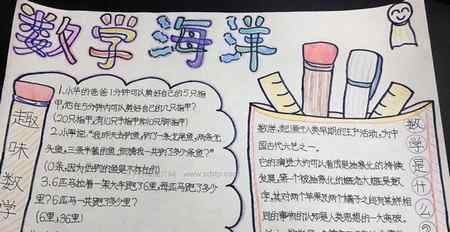 数学海洋
趣味数学
1.小华的爸爸1分钟可以剪好自己的5只指
甲,他在5分钟内可以剪好自己的几只指甲?
(20只指甲,有几只手指甲和几只脚指甲)
2.小华说:"我昨天去钓鱼,钓了一条无尾鱼,两条无
头鱼,三条半截的鱼,你猜我一共钓了多少条鱼?"
(0条,因为他钓的鱼是不存在的)
3.6匹马拉着一架大车跑了6里,每匹马跑了多少
里?6匹马一共跑了多少里?
(6里,36里)
数学是什么?
数学,起源于人类早期的生产活动,为中
国古代六艺之一。
它的演进大约可以看成是抽象化的持续
发展,第一个被抽象化的概念大概是数
字,其对两个苹果及两个橘子之间有某样相
同的事物的认知是人类思想的一大突破。